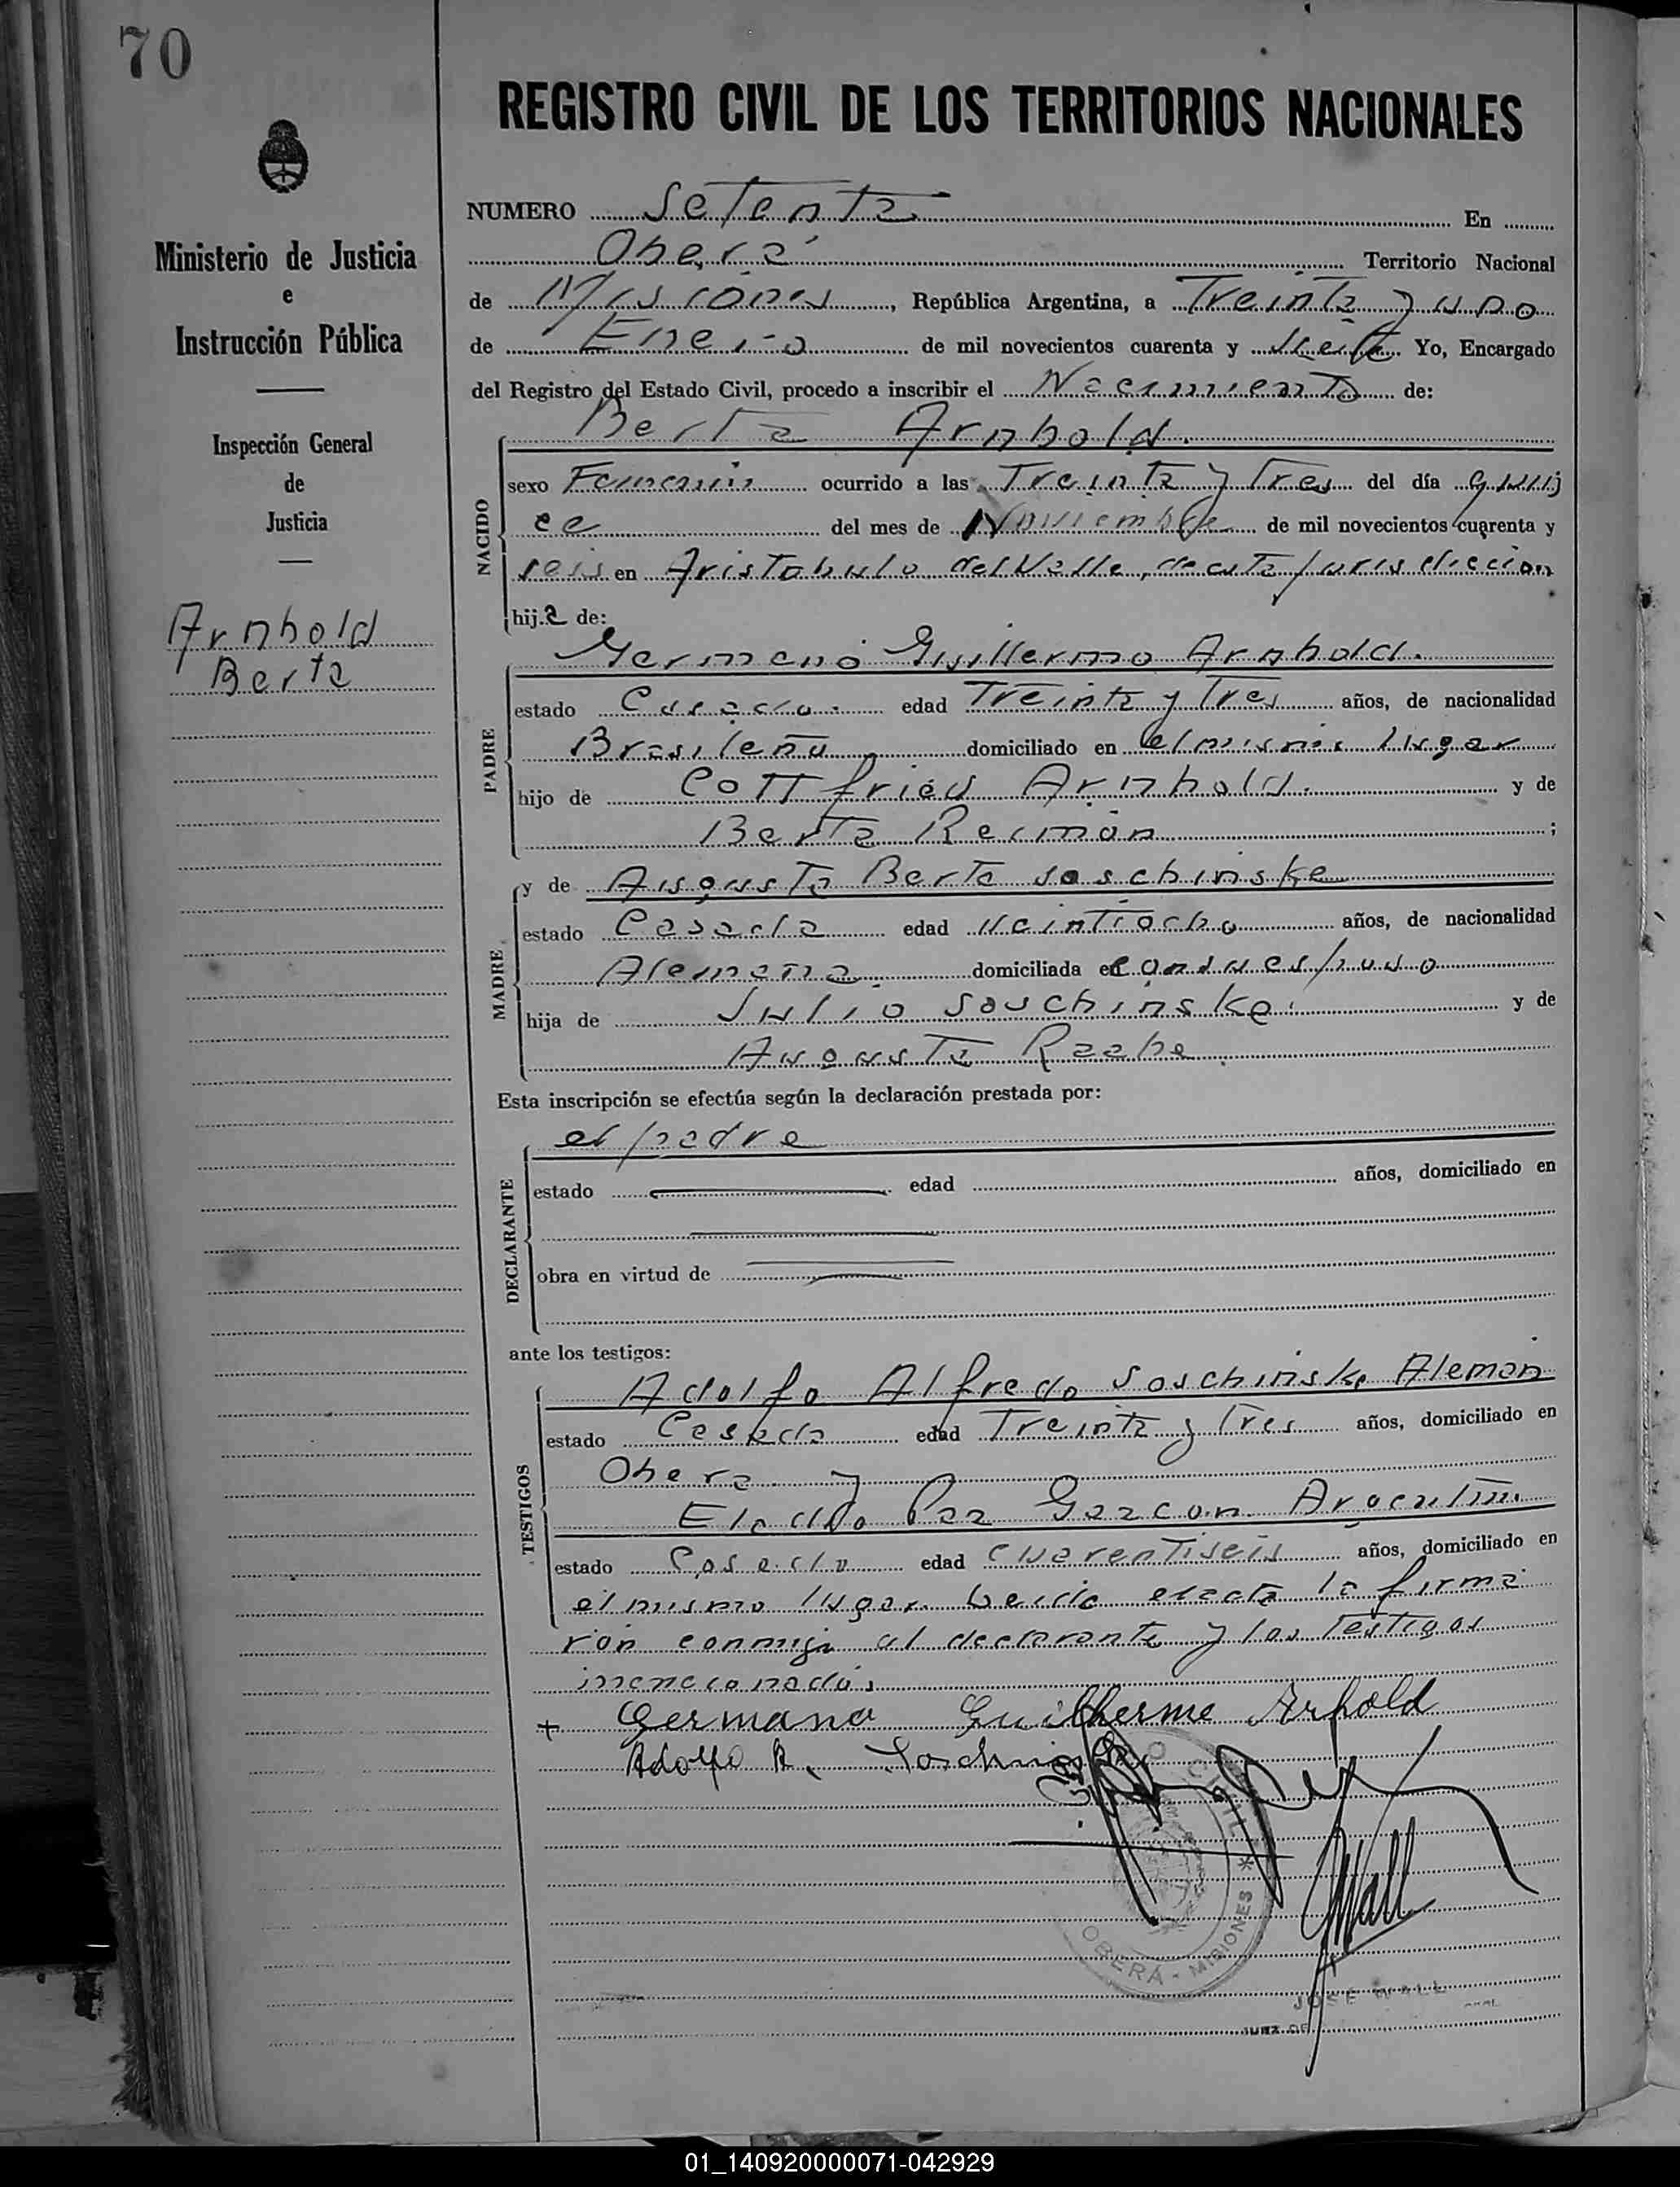 70
REGISTRO CIVIL DE LOS TERRITORIOS NACIONALES
Ministerio de Justicia
e
Instrucción Pública
Inspección General
de
Justicia
Arnhold
Berta
NUMERO Setenta En
Oberá Territorio Nacional
de Misiones, República Argentina, a Treinta y uno
de Enero de mil novecientos cuarenta y siete Yo, Encargado
del Registro del Estado Civil, procedo a inscribir el Nacimiento de:
Berta Arnhold.
NACIDO
sexo Femenin ocurrido a las Treinta y Tres del día quin
ce del mes de Noviembre de mil novecientos cuarenta y
seis en Aristobulo del Valle, de esta jurisdiccion
hija de:
Germano Guillermo Arnhold.
PADRE
estado Casado. edad Treinta y Tres años, de nacionalidad
Brasileña domiciliado en el mismo lugar
hijo de Cottfried Arnhold. y de
Berta Reiman ;
MADRE
y de Augusta Berta Soschinske
estado Casada edad Veintiocho años, de nacionalidad
Alemana domiciliada en con su esposo
hija de Julio Soschinske. y de
Augusta Raabe.
Esta inscripción se efectúa según la declaración prestada por:
el padre
DECLARANTE
estado edad años, domiciliado en
obra en virtud de
ante los testigos:
Adolfo Alfredo Soschinske Aleman
TESTIGOS
estado Casado edad Treinta y Tres años, domiciliado en
Obera y
Eladio Paz Garzon. Argentin
estado Casado edad cuarentiseis años, domiciliado en
el mismo lugar. Leida el acta la firma
ron conmigo el declarante y los Testigos
mencionados.
+ Germano Guilherme Arhold
Adolfo A. Soschinske
Wall
CIVIL * OBERÁ - MISIONES
JOSÉ WALL
JUEZ DE
01_140920000071-042929